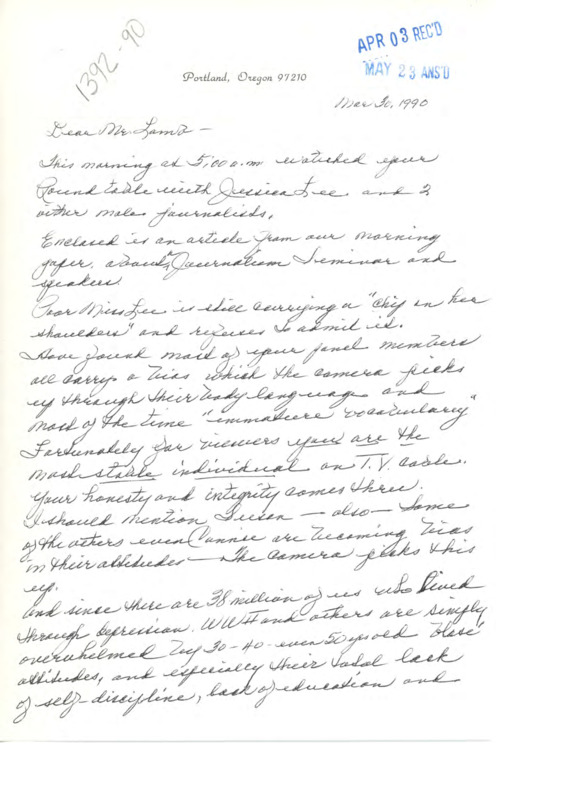 1392-90
APR 03 REC'D
MAY 23 ANS'D
Portland, Oregon 97210
Mar 30, 1990
Dear Mr. Lamb –
This morning at 5:00 a.m. watched your
Round table with Jessica Lee and 2
other male journalists.
Enclosed is an article from our morning
paper, about Journalism Seminar and
speakers.
Poor Miss Lee is still carrying a "chip on her
shoulders" and refuses to admit it.
Have found most of your panel members
all carry a bias which the camera picks
up through their body language and
most of the time "immature vocabulary"
Fortunately for viewers you are the
most stable individual on T.V. cable.
Your honesty and integrity comes thru.
I should mention Susan – also – Some
of the others even Connie are becoming bias
in their attitudes – The camera picks this
up.
And since there are 38 million of us who lived
through Depression, WWII and others are simply
overwhelmed by 30-40-even 50 yrs old blasé
attitudes, and especially their total lack
of self-discipline, lack of education and